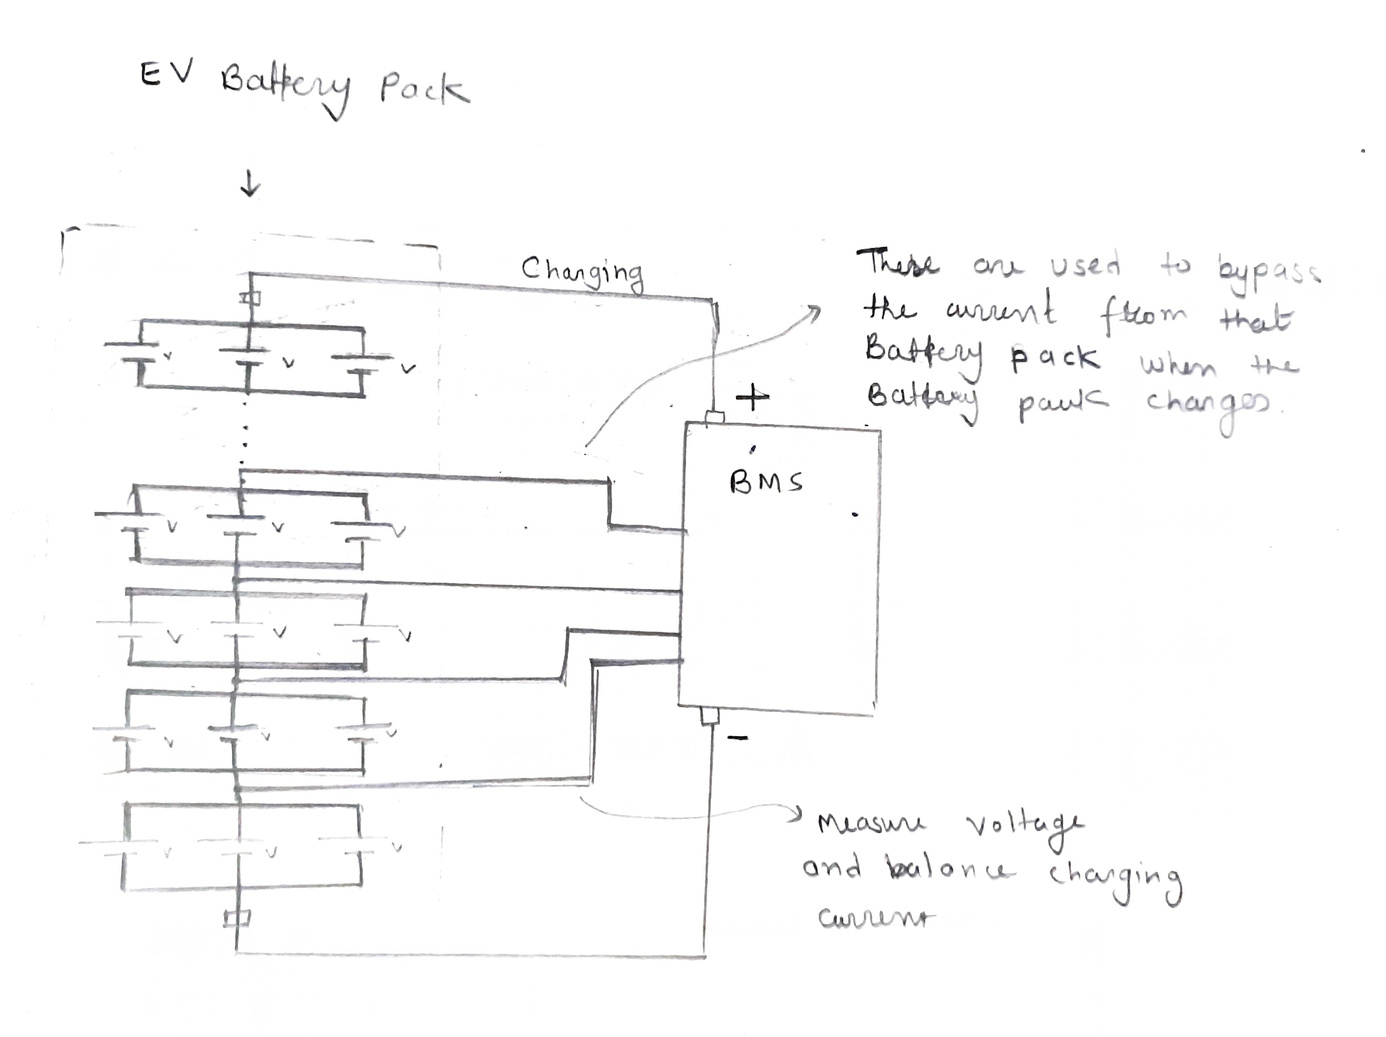 EV Battery Pack
Charging
These are used to bypass
the current from that
Battery pack when the
Battery pack charges.
+
BMS
V V V
V V V
V V V
V V V
V V V
-
Measure voltage
and balance charging
current